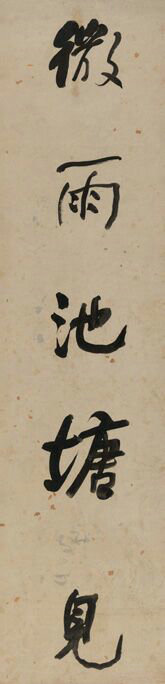 微雨池塘見